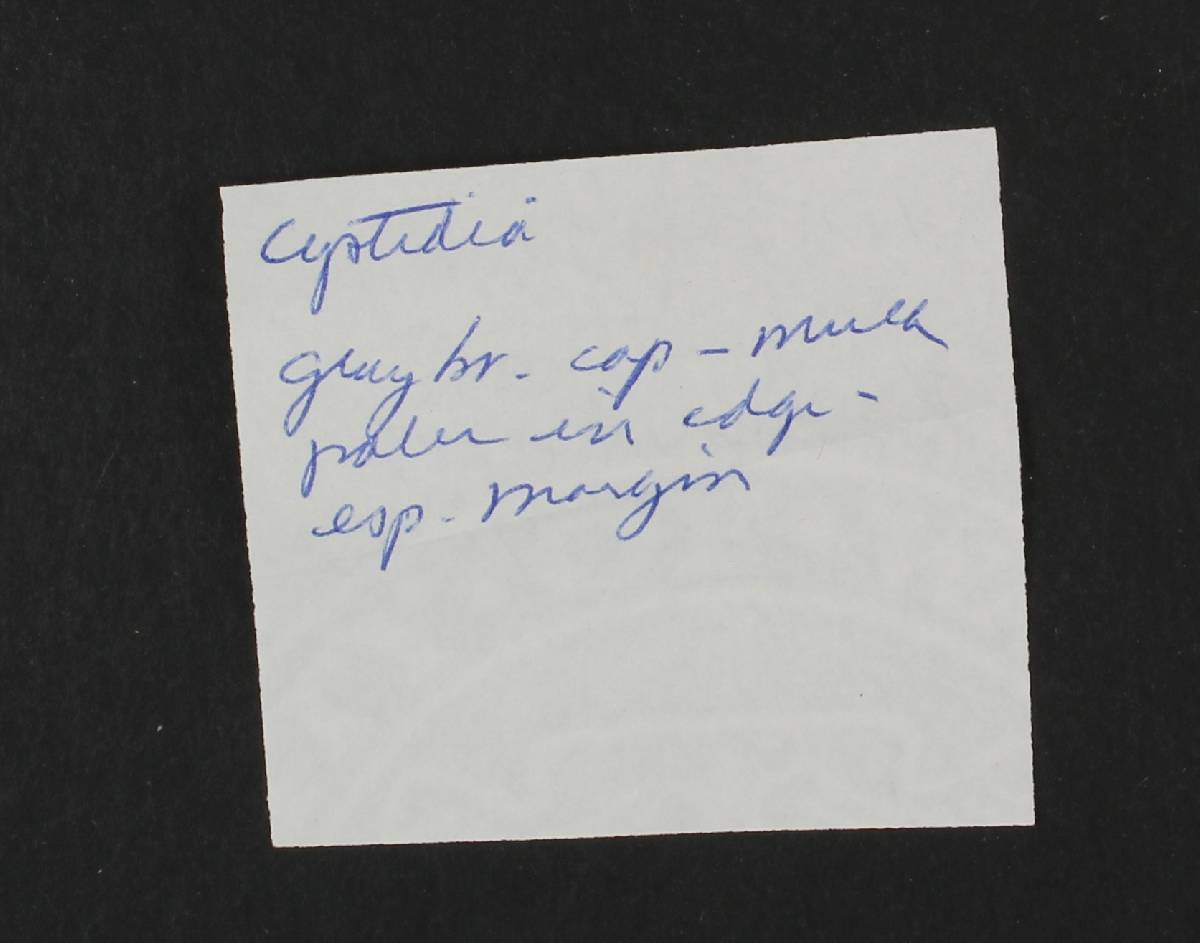 Cystidia
gray br. cap - much
paler in edge -
esp. margin